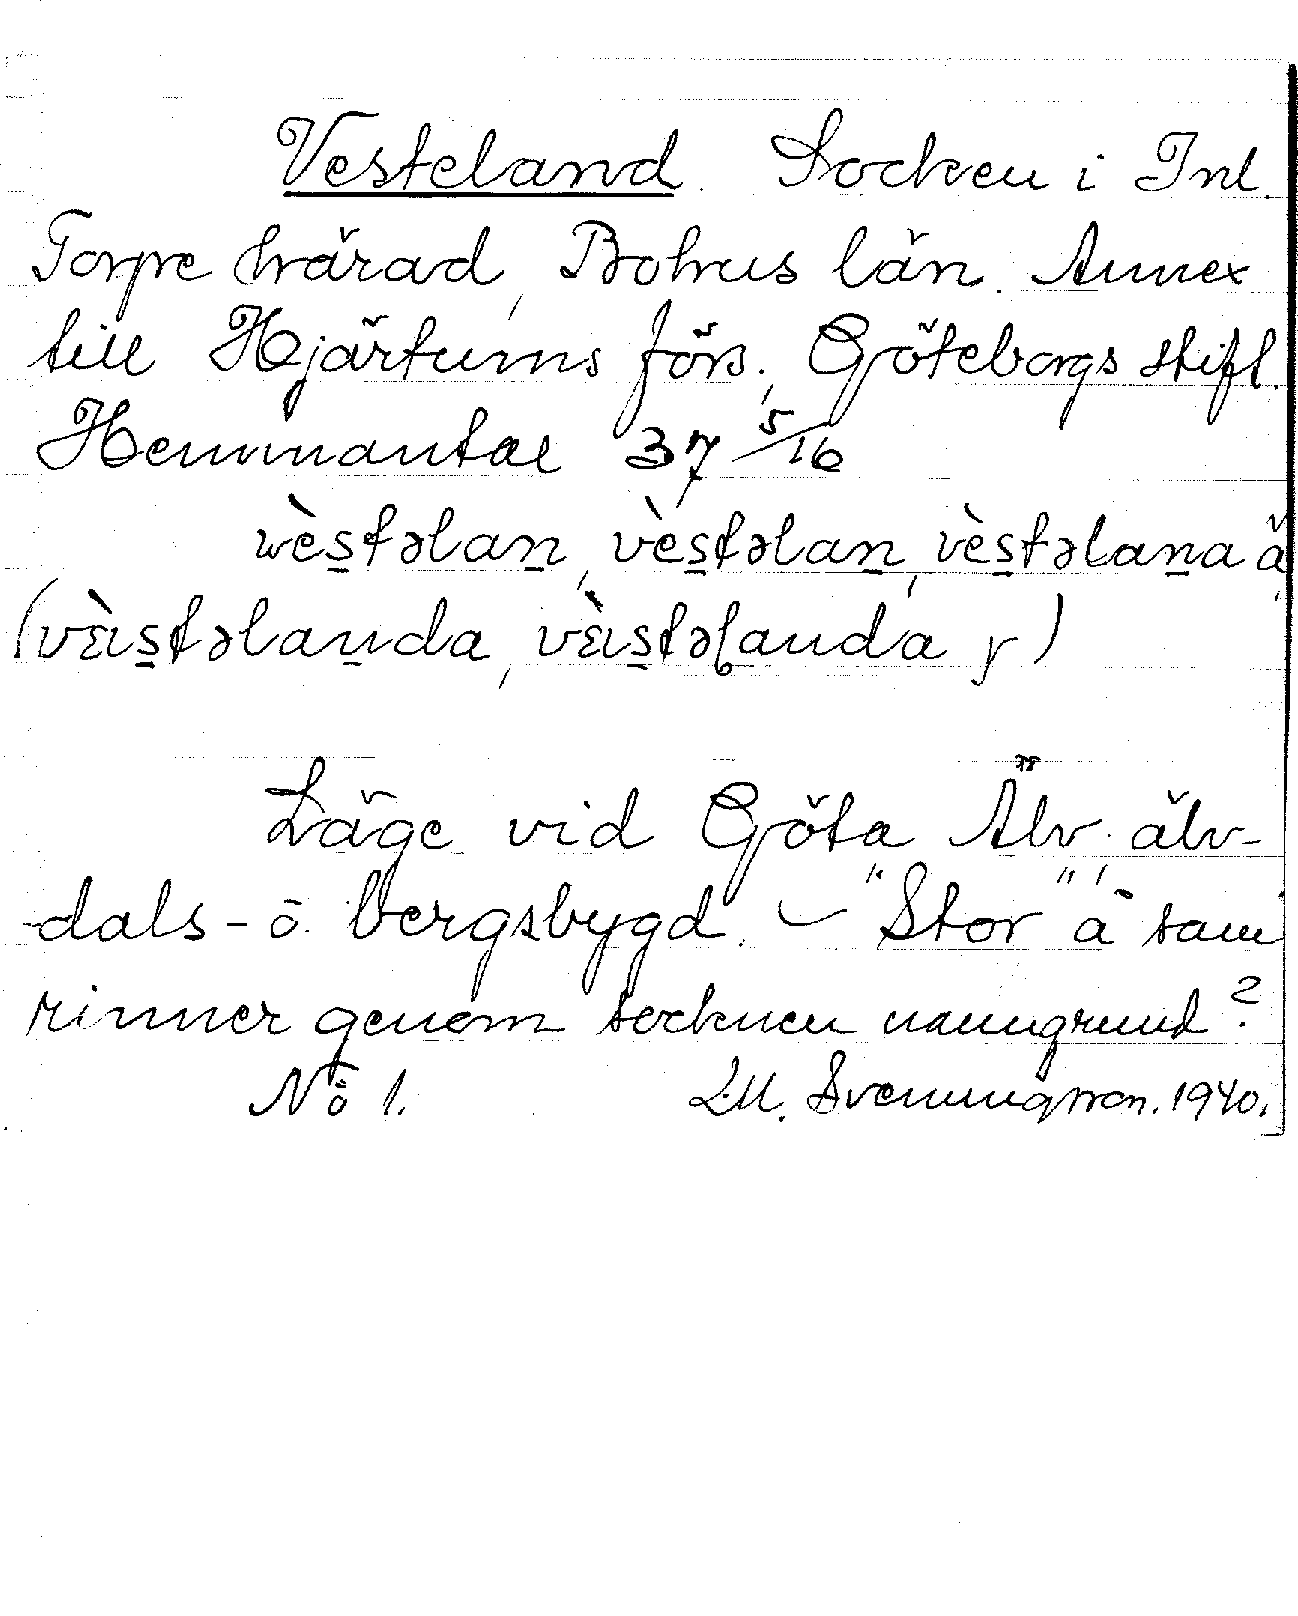 Vesteland. Socken i Inl.
Torpe härad, Bohus län. Annex
till Hjärtums förs., Göteborgs stift.
Hemmantal 37 5/16
wès̠təlan̠, vès̠təlan̠, vès̠təlan̠a ä
(vɛ̀ıs̠təlan̠da, vɛ̀ıs̠təlanda y)
Läge vid Göta Älv. älv-
dals- o. bergsbygd. – "Stor"å som
rinner genom socknen namngrund?
No 1. L.M. Svenungsson. 1940.